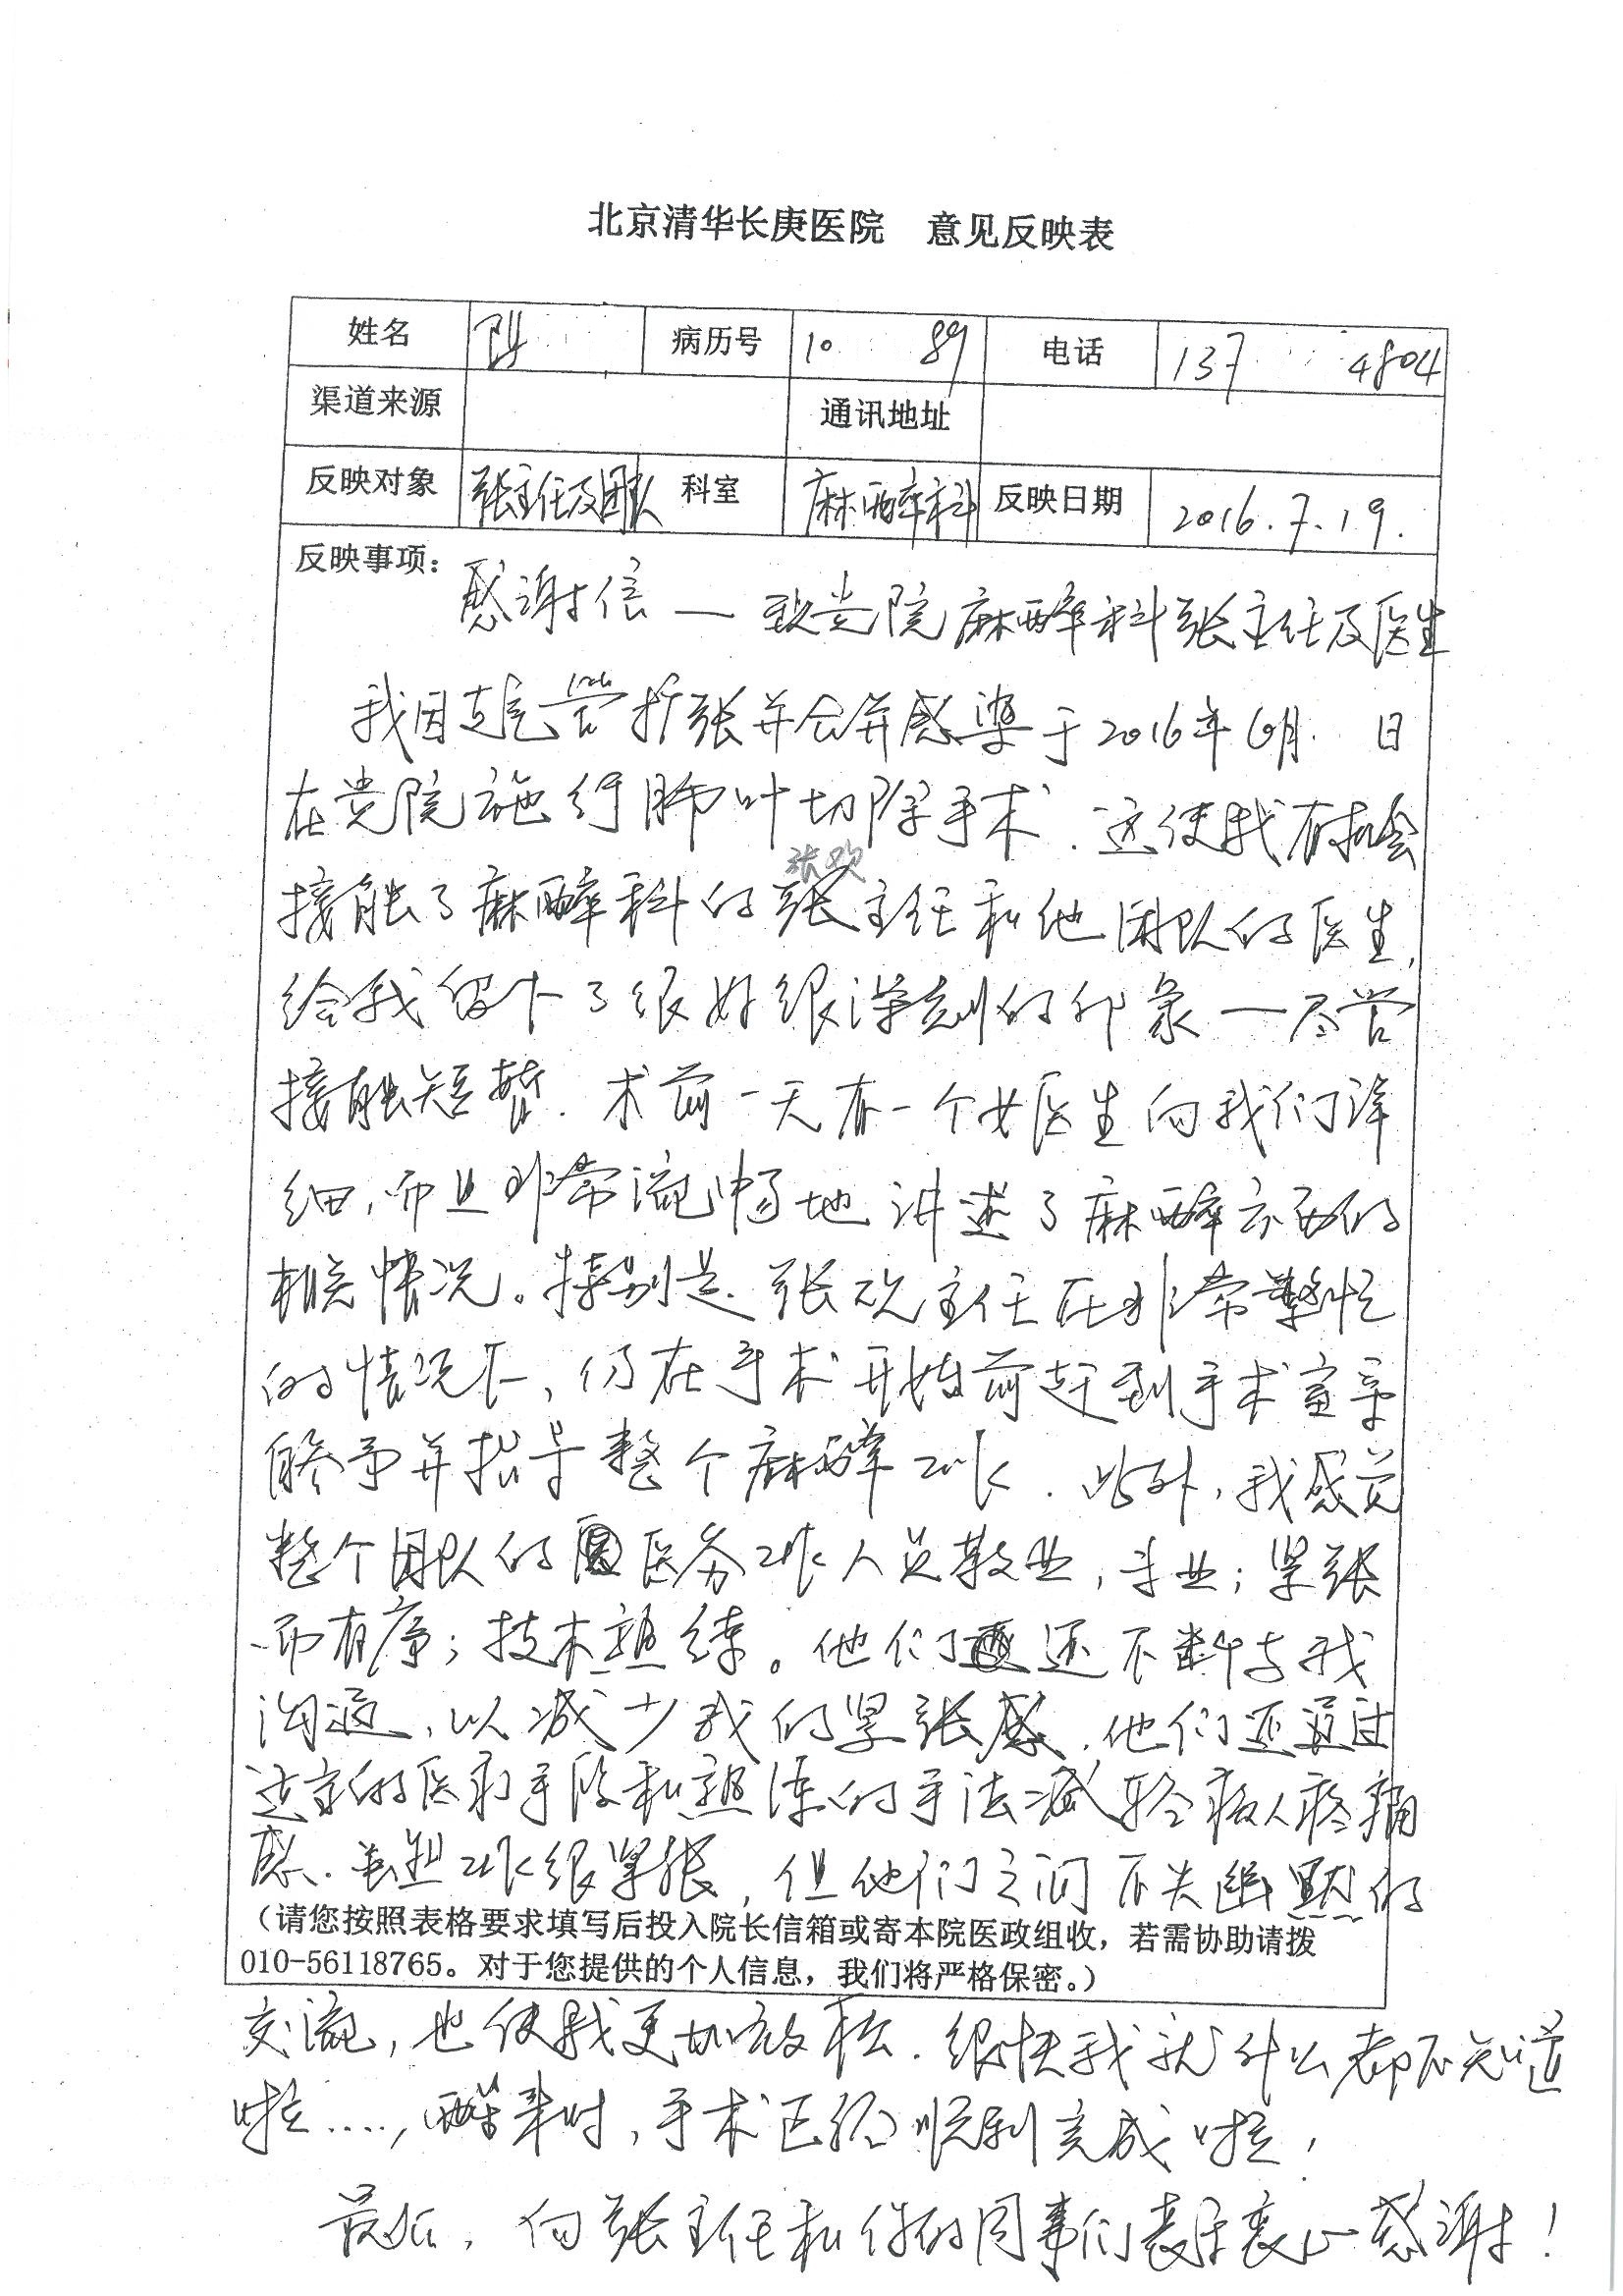 北京清华长庚医院 意见反映表
姓名 病历号 10 89 电话 137 4804
渠道来源 通讯地址
反映对象 张主任及团队 科室 麻醉科 反映日期 2016.7.19.
反映事项:
感谢信 — 致贵院麻醉科张主任及医生
我因支气管扩张并合并感染于2016年6月 日
在贵院施行肺叶切除手术.这使我有机会
张欢
接触了麻醉科的张主任和他团队的医生,
给我留下了很好很深刻的印象—尽管
接触短暂.术前一天有一个女医生向我们详
细,而且非常流畅地讲述了麻醉方面的
相关情况。特别是张欢主任在非常繁忙
的情况下,仍在手术开始前赶到手术室亲
自参予并指导整个麻醉工作.此外,我感觉
整个团队的医务工作人员敬业,专业;紧张
而有序;技术熟练。他们还不断与我
沟通,以减少我的紧张感.他们还通过
适宜的医疗手段和熟练的手法减轻病人疼痛
感.虽然工作很紧张,但他们之间不失幽默的
(请您按照表格要求填写后投入院长信箱或寄本院医政组收,若需协助请拨
010-56118765。对于您提供的个人信息,我们将严格保密。)
交流,也使我更加放松.很快我就什么都不知道
啦....,醒来时,手术已经顺利完成啦,
最后,向张主任和你的同事们表示衷心感谢!